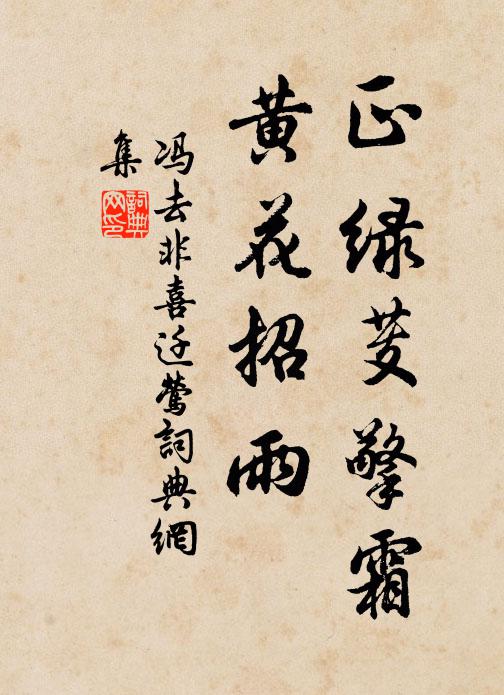 正绿芰擎霜
黄花招雨
冯去非喜迁鶯詞典網
集
詞典
网印